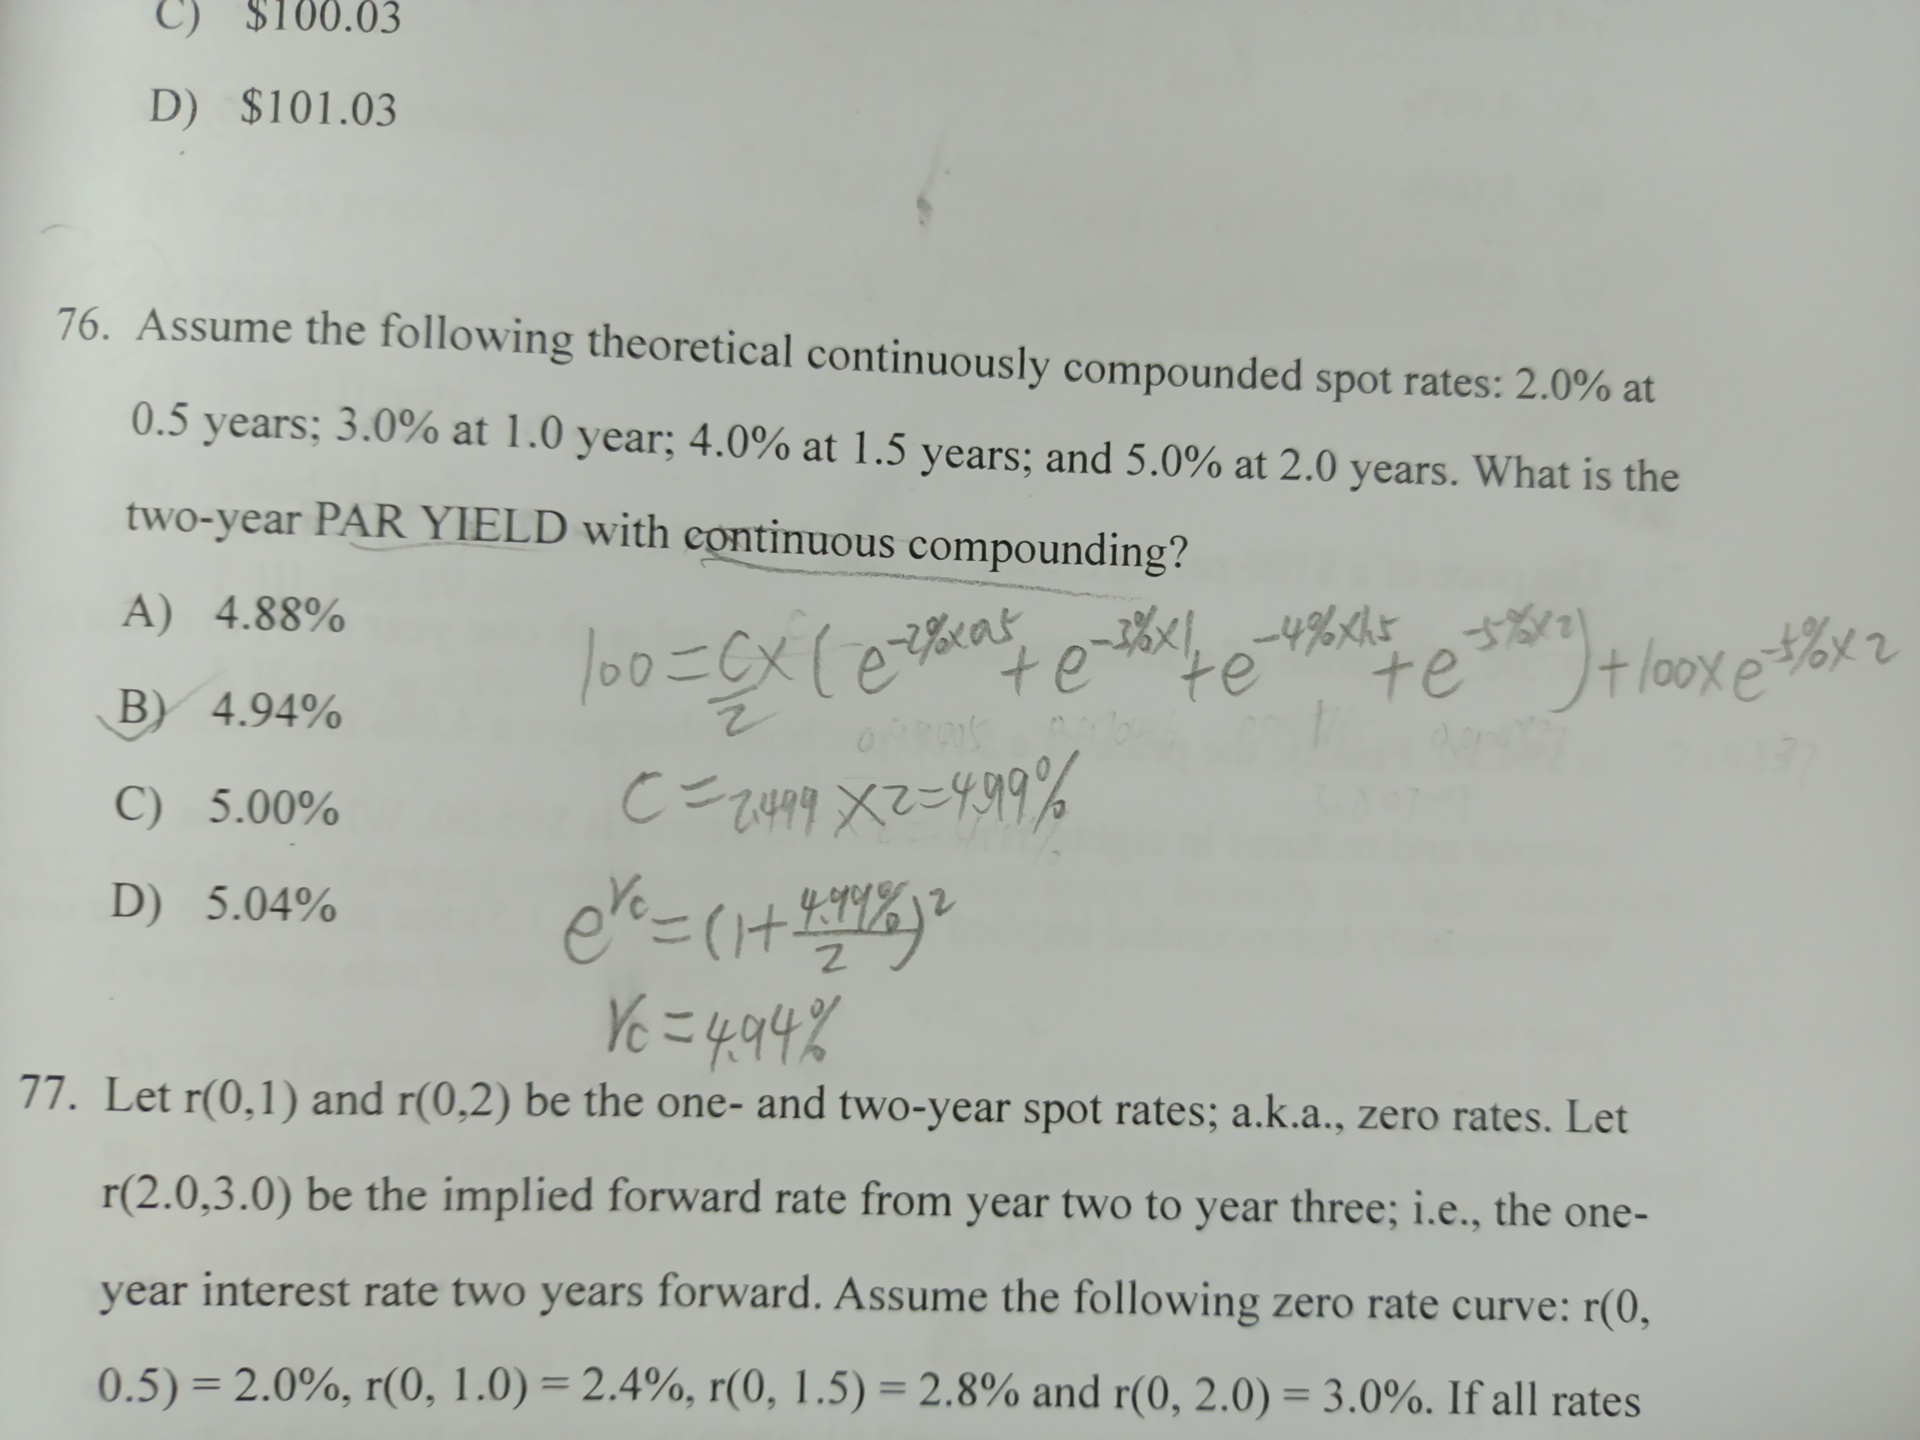 C) $100.03
D) $101.03
76. Assume the following theoretical continuously compounded spot rates: 2.0% at
0.5 years; 3.0% at 1.0 year; 4.0% at 1.5 years; and 5.0% at 2.0 years. What is the
two-year PAR YIELD with continuous compounding?
A) 4.88%
100 = C/2 × ( e^-2%×0.5 + e^-3%×1 + e^-4%×1.5 + e^-5%×2 ) + 100 × e^-5%×2
B) 4.94%
C = 2.499 × 2 = 4.99%
C) 5.00%
D) 5.04%
e^rc = (1 + 4.99%/2)^2
rc = 4.94%
77. Let r(0,1) and r(0,2) be the one- and two-year spot rates; a.k.a., zero rates. Let
r(2.0,3.0) be the implied forward rate from year two to year three; i.e., the one-
year interest rate two years forward. Assume the following zero rate curve: r(0,
0.5) = 2.0%, r(0, 1.0) = 2.4%, r(0, 1.5) = 2.8% and r(0, 2.0) = 3.0%. If all rates